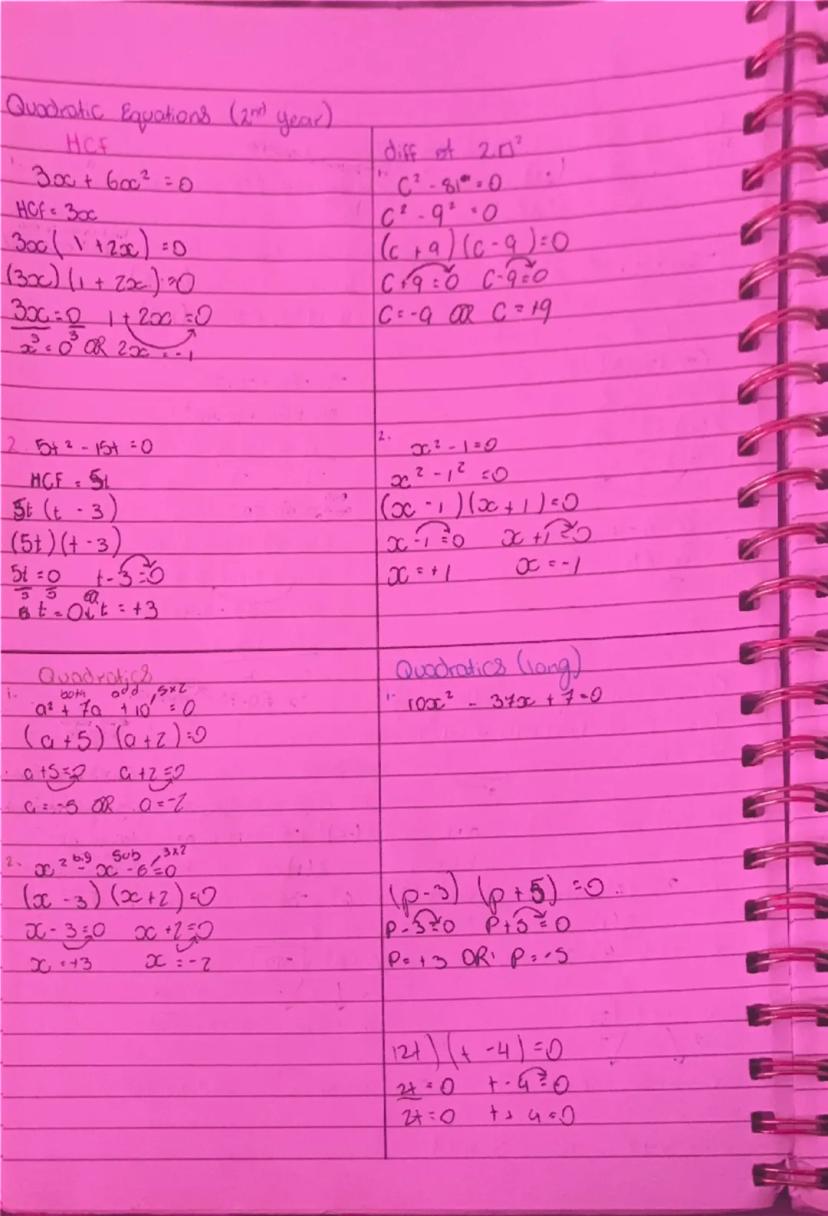 Quadratic Equations (2nd year)
HCF
1. 3x + 6x² = 0
HCF = 3x
3x(1 + 2x) = 0
(3x)(1 + 2x) = 0
3x = 0 1 + 2x = 0
3 3
x = 0 OR 2x = -1
2. 5t² - 15t = 0
HCF = 5t
5t(t - 3)
(5t)(t - 3)
5t = 0 t - 3 = 0
5 5
t = 0 OR t = +3
diff of 2 □²
1. c² - 81 = 0
c² - 9² = 0
(c + 9)(c - 9) = 0
c + 9 = 0 c - 9 = 0
c = -9 OR c = +9
2. x² - 1 = 0
x² - 1² = 0
(x - 1)(x + 1) = 0
x - 1 = 0 x + 1 = 0
x = +1 x = -1
Quadratics
both add 5x2
1. a² + 7a + 10 = 0
(a + 5)(a + 2) = 0
a + 5 = 0 a + 2 = 0
a = -5 OR a = -2
big sub 3x2
2. x² - x - 6 = 0
(x - 3)(x + 2) = 0
x - 3 = 0 x + 2 = 0
x = +3 x = -2
Quadratics (long)
1. 10x² - 37x + 7 = 0
(p - 3)(p + 5) = 0
p - 3 = 0 p + 5 = 0
p = +3 OR p = -5
(2t)(t - 4) = 0
2t = 0 t - 4 = 0
2t = 0 4 = 0